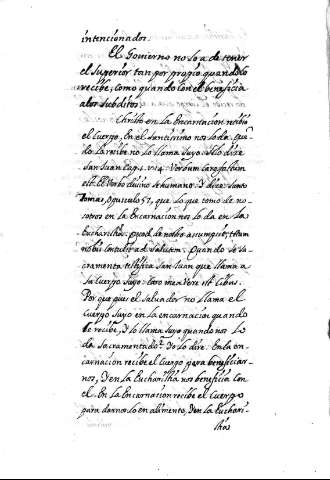 intencionados.
El Govierno no lo a de tener
el Superior tan por propio quando lo
recibe, como quando con el beneficia
a los subditos.
Christo en la Encarnacion recibio
el Cuerpo, En el Santisimo nos lo da. Quan
do la recibe no le llama suyo, solo dize
San Juan Cap. 1. v. 14. Verbum Caro factum
est: El Verbo divino se humano. Y dize Santo
Tomas, Opusculo 57, que lo que tomo de no
sotros en la Encarnacion nos lo da en la
Eucharistia: quod de nostro assumpsit, totum
nobis contulit ad salutem. Quando se sa
cramenta testifica San Juan que llama a
su Cuerpo suyo: Caro mea vere est cibus.
Por que pues el Salvador no llama el
Cuerpo suyo en la encarnacion quando
le recibe, y lo llama suyo quando nos lo
da Sacramentado? Yo lo dire. En la en
carnacion recibe el Cuerpo para beneficiar
nos, y en la Eucharistia nos beneficia con
el. En la Encarnacion recibe el Cuerpo
para darnoslo en alimento, y en la Euchari-
stia